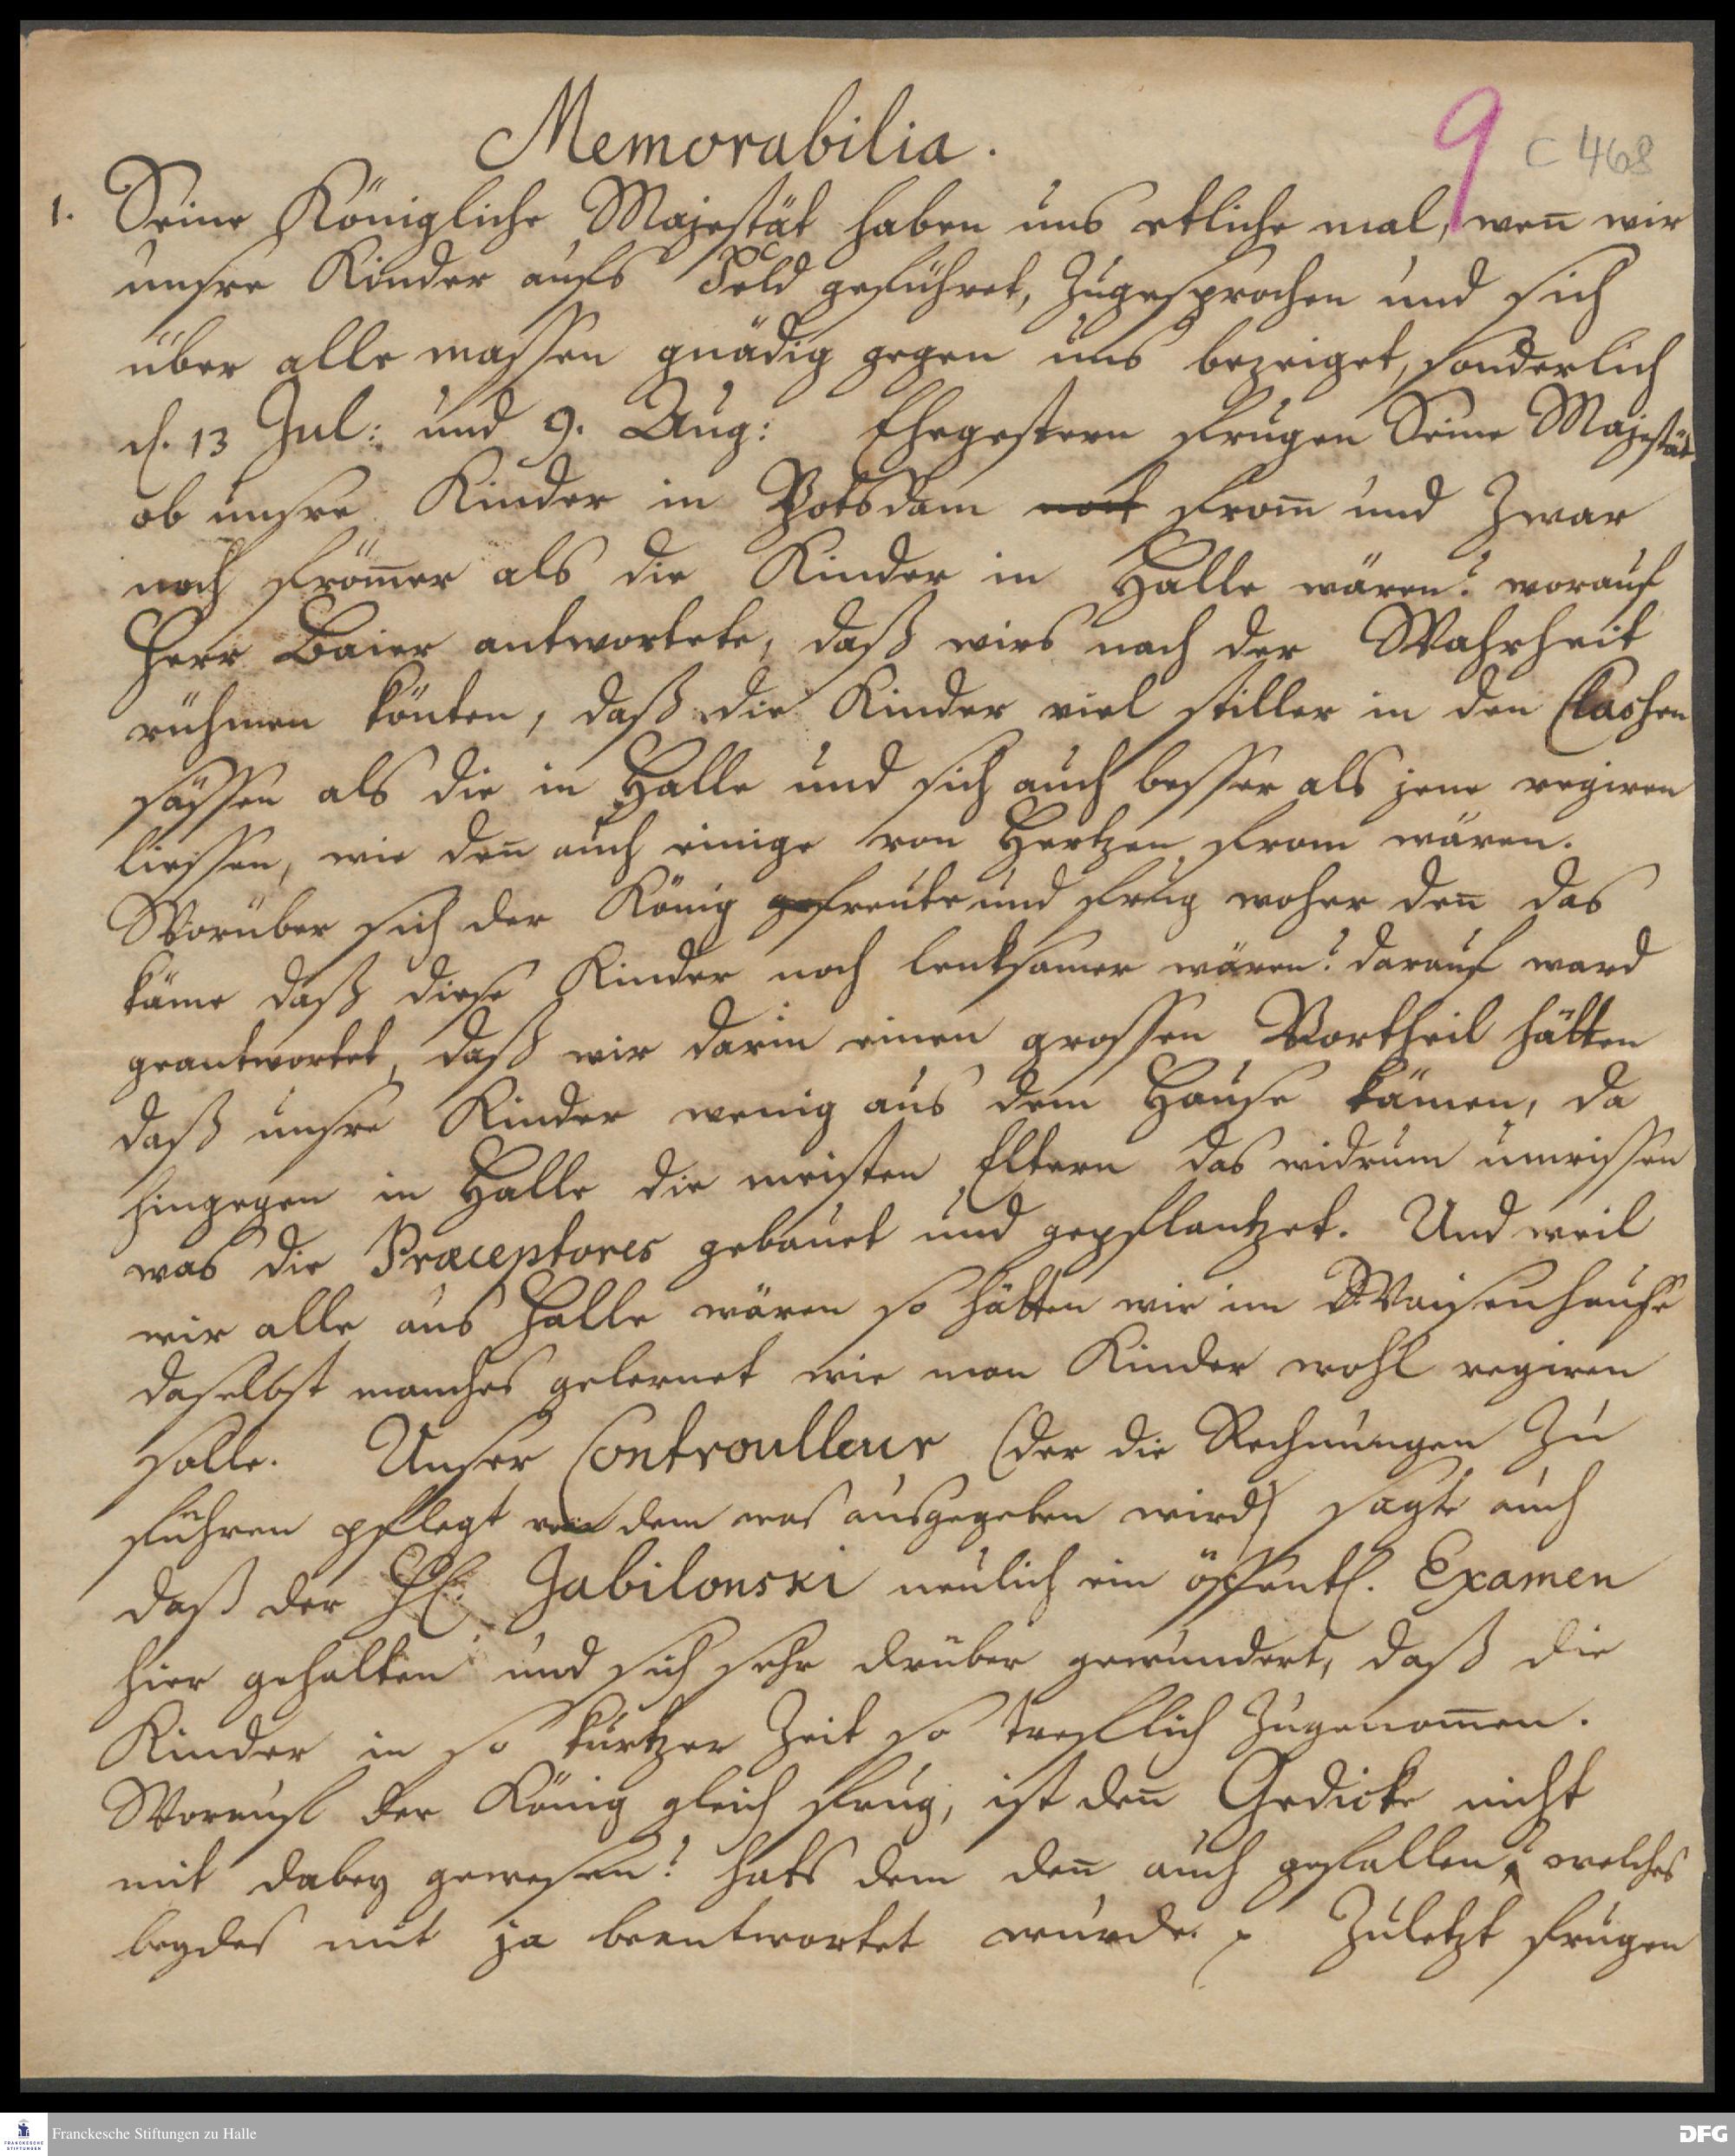 Memorabilia.
9 C 468
1. Seine Königliche Majestät haben uns etliche mal, wen̄ wir
unsre Kinder aufs Feld geführet, zugesprochen und sich
über alle massen gnädig gegen uns bezeiget, sonderlich
d. 13 Jul: und 9. Aug: Ehegestern frugen Seine Majestät
ob unsre Kinder in Potsdam from̄ und zwar
noch from̄er als die Kinder in Halle wären? worauf
Herr Baier antwortete, daß wirs nach der Wahrheit
rühmen könten, daß die Kinder viel stiller in den Classen
sässen als die in Halle und sich auch besser als jene regiren
liessen, wie den̄ auch einige von Hertzen from wären.
Worüber sich der König freute und frug woher den̄ das
käme daß diese Kinder noch lenksamer wären? darauf ward
geantwortet, daß wir darin einen grossen Vortheil hätten
daß unsre Kinder wenig aus dem Hause kämen, da
hingegen in Halle die meisten Eltern das widrum umrissen
was die Præceptores gebauet und gepflantzet. Und weil
wir alle aus Halle wären so hätten wir im Waisenhause
daselbst manches gelernet wie man Kinder wohl regiren
solle. Unser Controulleur (der die Rechnungen zu
führen pflegt von dem was ausgegeben wird) sagte auch
daß der H. Jabilonski neulich ein öffentl. Examen
hier gehalten und sich sehr drüber gewundert, daß die
Kinder in so kurtzer Zeit so treflich zugenom̄en.
Worauf der König gleich frug, ist den̄ Gedicke nicht
mit dabey gewesen? hats dem den̄ auch gefallen? welches
beydes mit ja beantwortet wurde. Zuletzt frugen
FRANCKESCHE STIFTUNGEN
Franckesche Stiftungen zu Halle
DFG